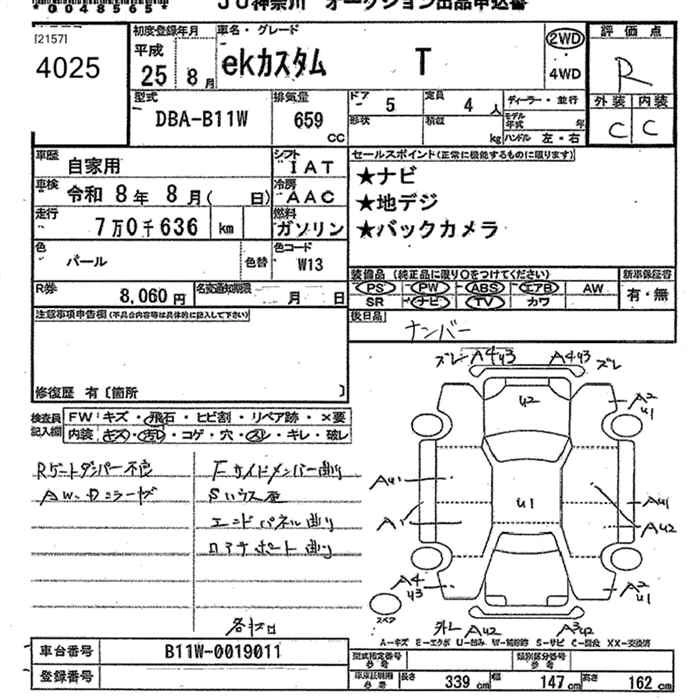 *0048565*
JU神奈川 オークション出品申込書
[2157]
4025
初度登録年月
平成
25 8月
車名・グレード
ekカスタム T
2WD
・
4WD
評価点
R
外装 内装
C C
型式
DBA-B11W
排気量
659
CC
ドア 5
定員 4 人
ディーラー・並行
形状
積載
kg
モデル年式 年
ハンドル 左・右
車歴
自家用
シフト
IAT
車検
令和 8年 8月( 日)
冷房
AAC
走行
7万0千636 km
燃料
ガソリン
色
パール
色替
色コード
W13
R券
8,060円
名変通知期限
月 日
セールスポイント(正常に機能するものに限ります)
★ナビ
★地デジ
★バックカメラ
装備品(純正品に限り〇をつけてください)
新車保証書
PS PW ABS エアB AW
SR ナビ TV カワ
有・無
後日品
ナンバー
注意事項申告欄(不具合内容等は具体的に記入して下さい)
修復歴 有〔箇所 〕
検査員
記入欄
FW キズ・飛石・ヒビ割・リペア跡・×要
内装 キズ・汚レ・コゲ・穴・スレ・キレ・破レ
Rゲートダンパー不良
Fサイドメンバー曲り
エンドパネル曲り
ズレ A4U3
A4U3 ズレ
U2
A2
U1
AU1
U1
AU1
A
AU2
A4
U3
A2
U1
スペア
外レ AU2
A3U2
車台番号
B11W-0019011
登録番号
型式指定番号
参考
類別区分番号
参考
車庫証明用
参考
長さ 339 cm
幅 147 cm
高さ 162 cm